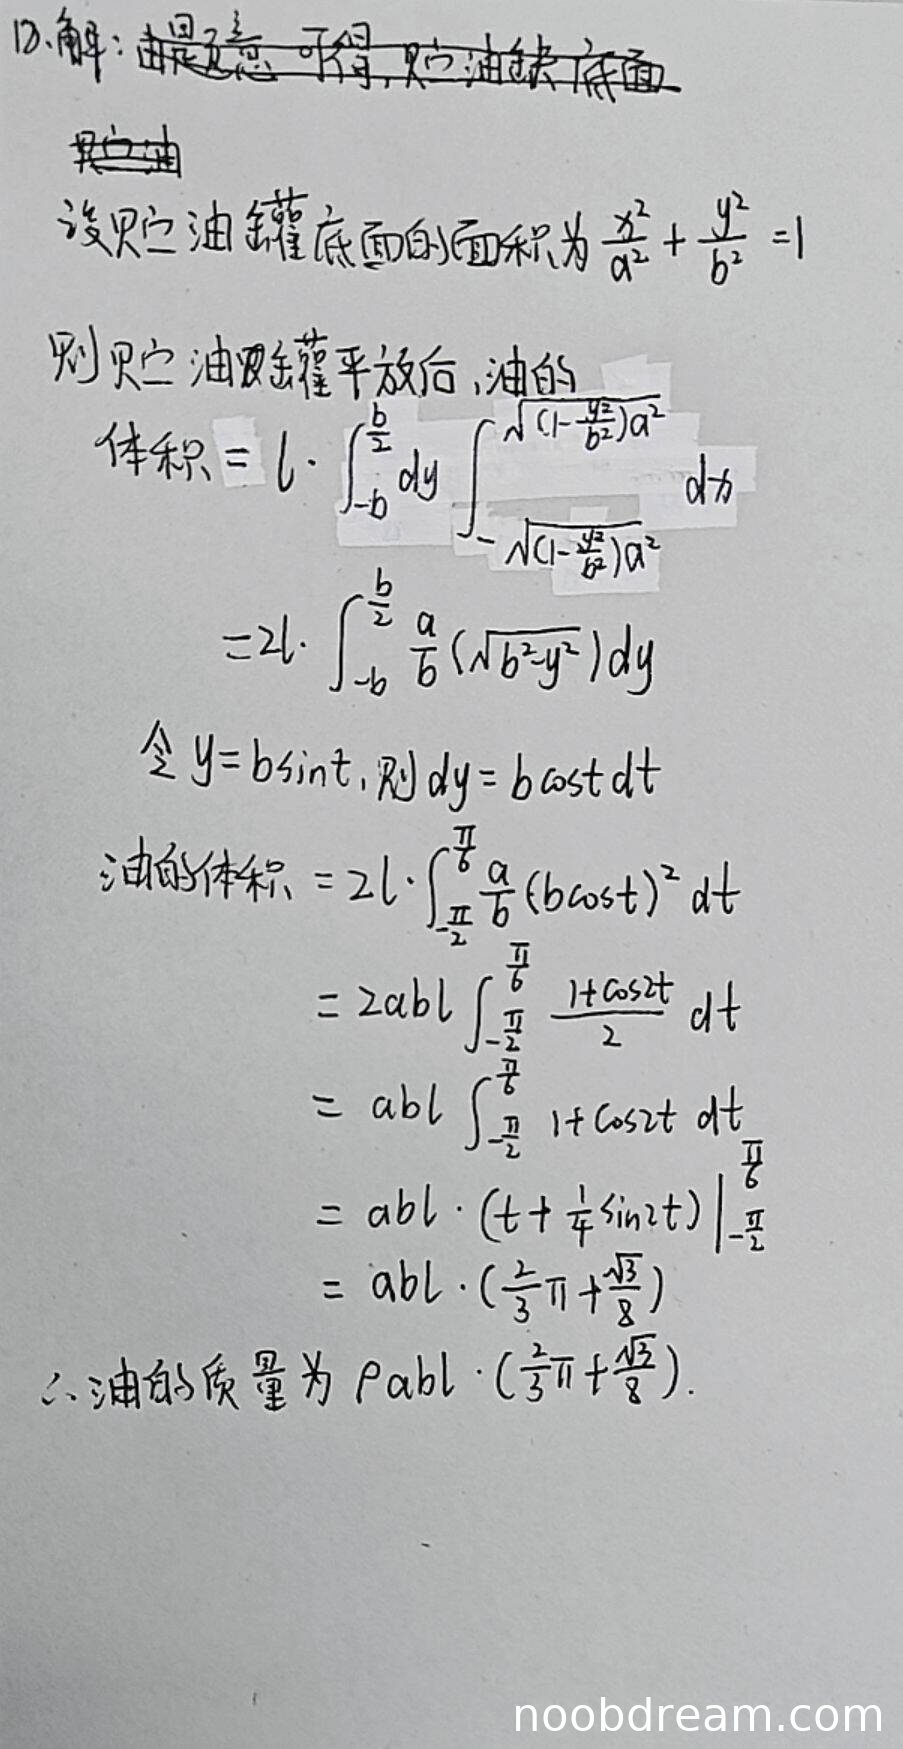 解:由题意可得,贮油罐底面
贮油
设贮油罐底面的面积为 x²/a² + y²/b² = 1
则贮油罐平放后,油的
体积 = l·∫_{-b}^{b/2} dy ∫_{-√((1-y²/b²)a²)}^{√((1-y²/b²)a²)} dx
=2l·∫_{-b}^{b/2} a/b (√(b²-y²)) dy
令 y=bsint,则 dy=bcostdt
油的体积 = 2l·∫_{-π/2}^{π/6} a/b (bcost)² dt
= 2abl ∫_{-π/2}^{π/6} (1+cos2t)/2 dt
= abl ∫_{-π/2}^{π/6} 1+cos2t dt
= abl·(t+1/4 sin2t)|_{-π/2}^{π/6}
= abl·(2/3 π+√3/8)
∴油的质量为 ρabl·(2/3 π+√3/8).
noobdream.com